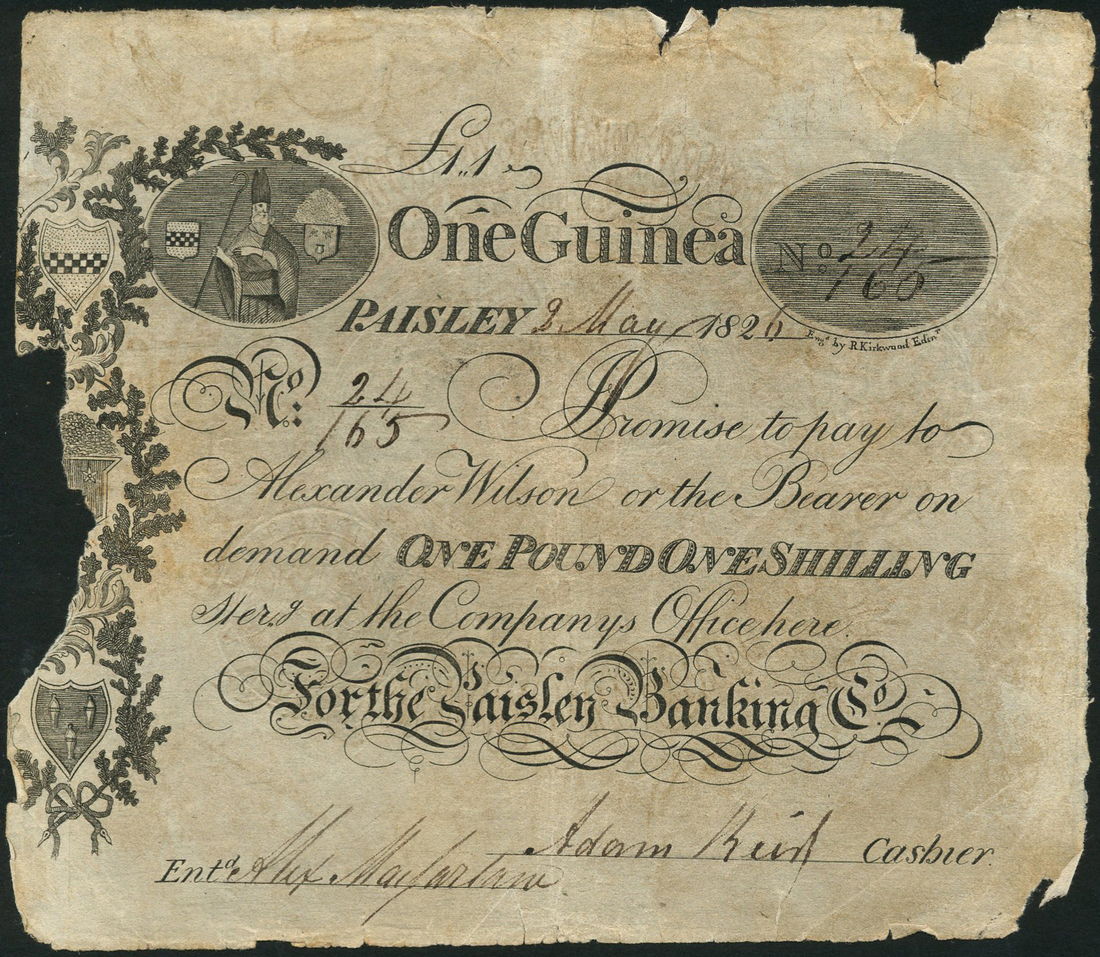 £1"1
One Guinea
No. 24/160
PAISLEY 2 May 1826
Engd by R Kirkwood Edinr
No: 24/165 I Promise to pay to
Alexander Wilson or the Bearer on
demand ONE POUND ONE SHILLING
Sterg at the Companys Office here.
For the Paisley Banking Co.
Adam Reid Cashier.
Entd Alex Macfarlane